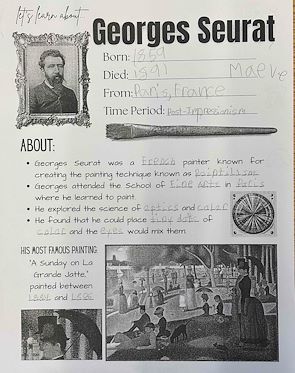 let's learn about...
Georges Seurat
Born: 1859
Died: 1891
Maeve
From: Paris, France
Time Period: Post-Impressionism
ABOUT:
• Georges Seurat was a French painter known for
creating the painting technique known as pointillism.
• Georges attended the School of Fine Arts in Paris
where he learned to paint.
• He explored the science of optics and color.
• He found that he could place tiny dots of
color and the eyes would mix them.
HIS MOST FAMOUS PAINTING:
"A Sunday on La
Grande Jatte,"
painted between
1884 and 1886